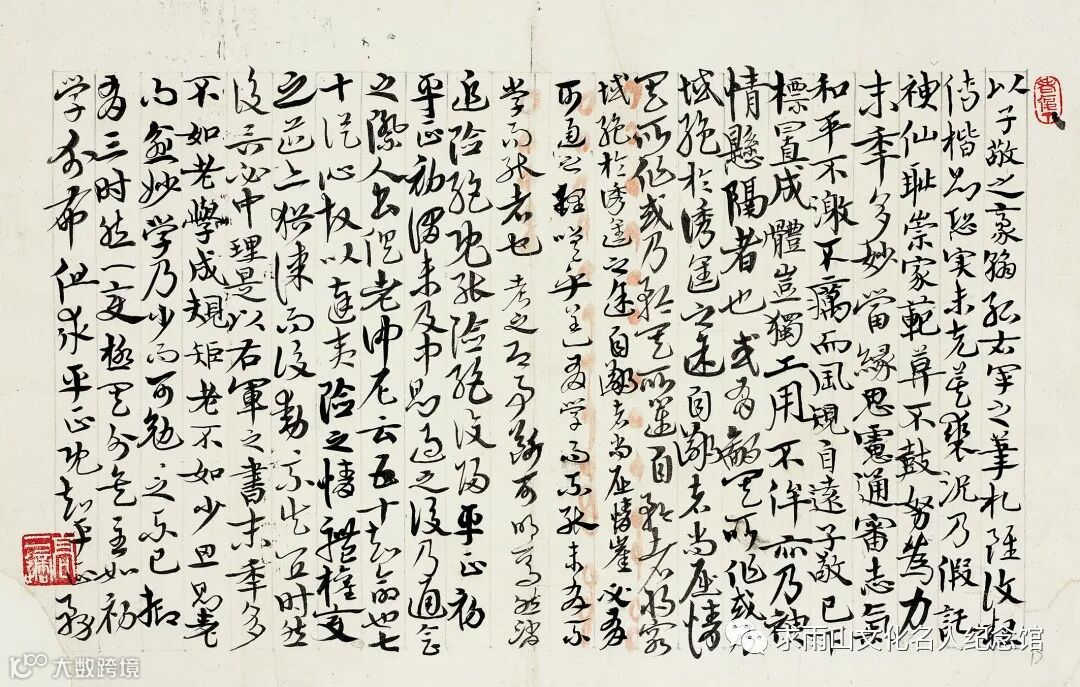 以子敬之豪翰紹右军之筆札雖復粗
傳楷則恐实未克箕裘況乃假託
神仙耻崇家範莫不鼓努為力
末年多妙當緣思慮通審志氣
和平不激不厲而風規自遠子敬已
標置成體豈獨工用不侔亦乃神
情懸隔者也或有鄙其所作或
域絕於誘進之途自鄙者尚屈情
其所作或乃矜其所運自矜者將窮
域絕於誘進之途自鄙者尚屈情崖必有
可通之理嗟乎蓋有學而不能未有不
学而能者也考之即事斷可明焉然
追險絕既能險絕復歸平正初
平正初謂未及中則過之後乃通会
之際人書俱老仲尼云五十知命也七
十從心故以達夷險之情體權變
之道亦猶謀而後動動不失宜时然
後言必中理是以右軍之書末年多
不如老學成規矩老不如少思則老
而愈妙学乃少而可勉之不已抑
有三时然一变極其分矣至如初
学分布但求平正既知平正務
求雨山文化名人纪念馆
大数跨境